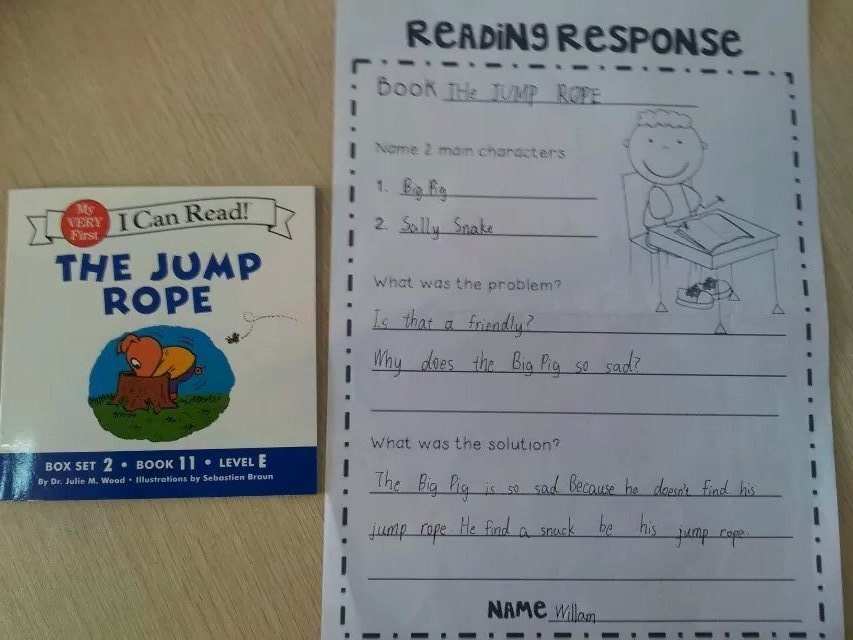 READING RESPONSE
BOOK THe JUMP ROPE
Name 2 main characters
1. Big Pig
2. Sally Snake
What was the problem?
Is that a friendly?
Why does the Big Pig so sad?
What was the solution?
The Big Pig is so sad Because he doesn't find his
jump rope. He find a snack be his jump rope
NAME Willam
My VERY First I Can Read!
THE JUMP
ROPE
BOX SET 2 • BOOK 11 • LEVEL E
By Dr. Julie M. Wood • Illustrations by Sebastien Braun